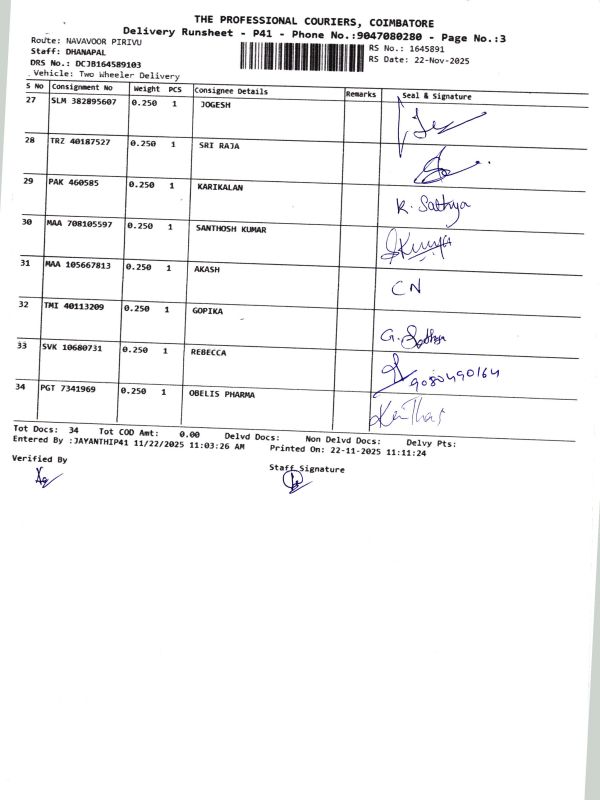 THE PROFESSIONAL COURIERS, COIMBATORE
Delivery Runsheet - P41 - Phone No.:9047080280 - Page No.:3
Route: NAVAVOOR PIRIVU
RS No.: 1645891
Staff: DHANAPAL
RS Date: 22-Nov-2025
DRS No.: DCJB164589103
Vehicle: Two Wheeler Delivery
S No Consignment No Weight PCS Consignee Details Remarks Seal & Signature
27 SLM 382895607 0.250 1 JOGESH
28 TRZ 40187527 0.250 1 SRI RAJA
29 PAK 460585 0.250 1 KARIKALAN K. Sathya
30 MAA 708105597 0.250 1 SANTHOSH KUMAR
31 MAA 105667813 0.250 1 AKASH CN
32 TMI 40113209 0.250 1 GOPIKA G. Sathya
33 SVK 10680731 0.250 1 REBECCA 9080490164
34 PGT 7341969 0.250 1 OBELIS PHARMA
Tot Docs: 34 Tot COD Amt: 0.00 Delvd Docs: Non Delvd Docs: Delvy Pts:
Entered By :JAYANTHIP41 11/22/2025 11:03:26 AM Printed On: 22-11-2025 11:11:24
Verified By
Staff Signature